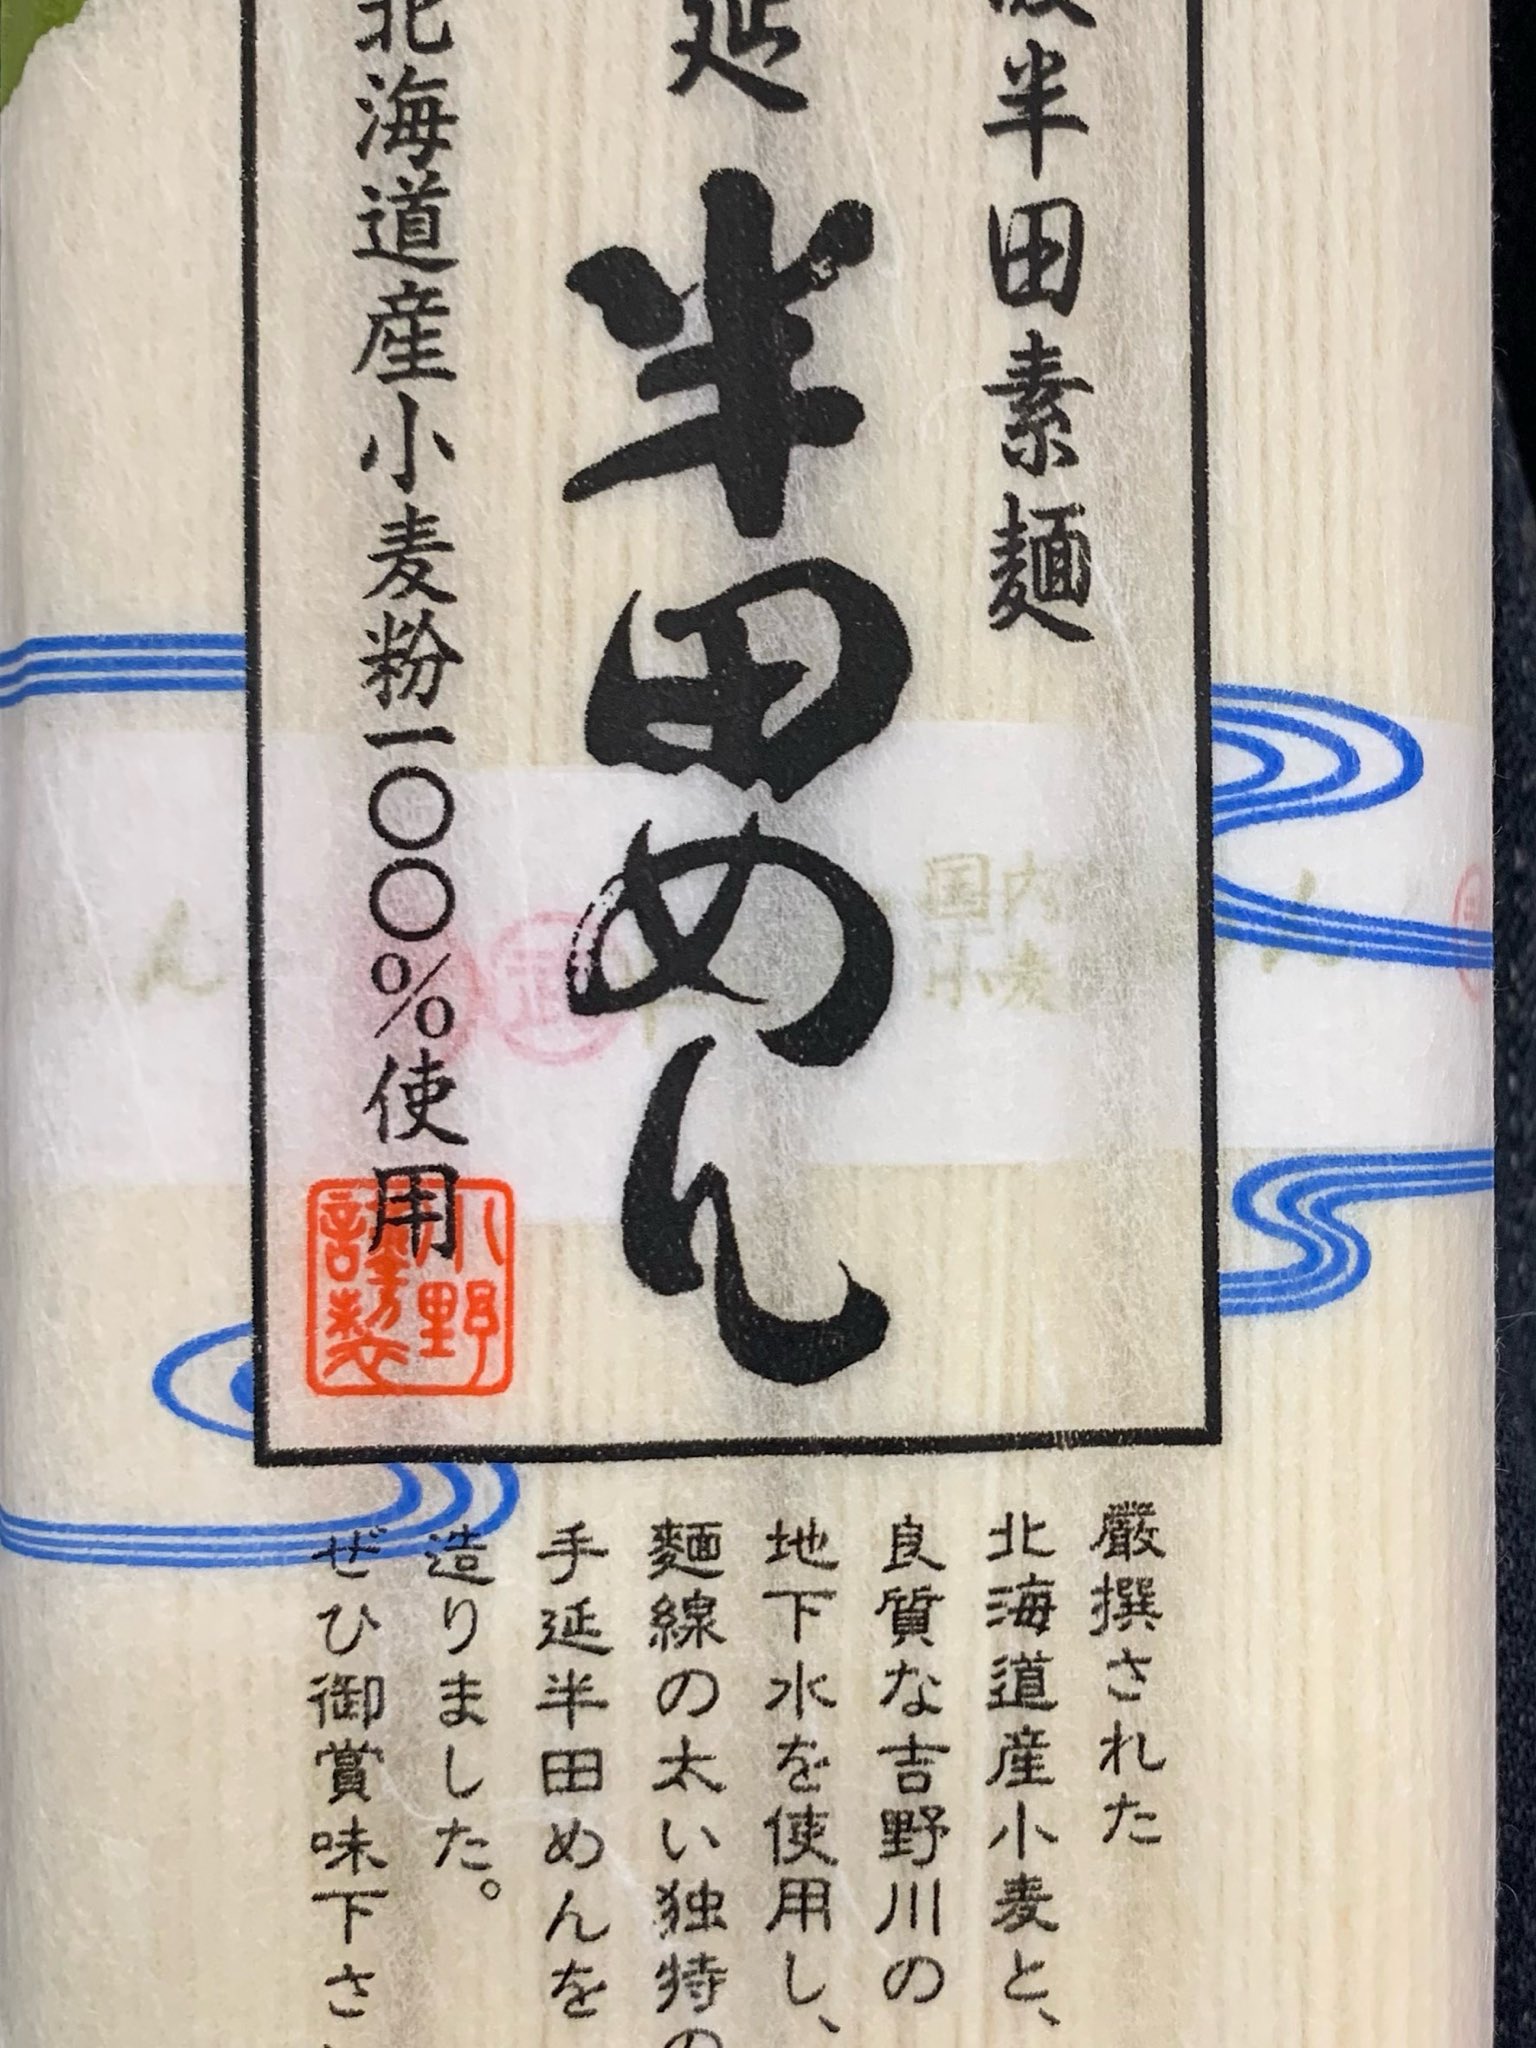 半田素麺
延
半田めん
北海道産小麦粉一〇〇％使用
小野
謹製
国内
小麦
厳撰された
北海道産小麦と、
良質な吉野川の
地下水を使用し、
麺線の太い独特の
手延半田めんを
造りました。
ぜひ御賞味下さい